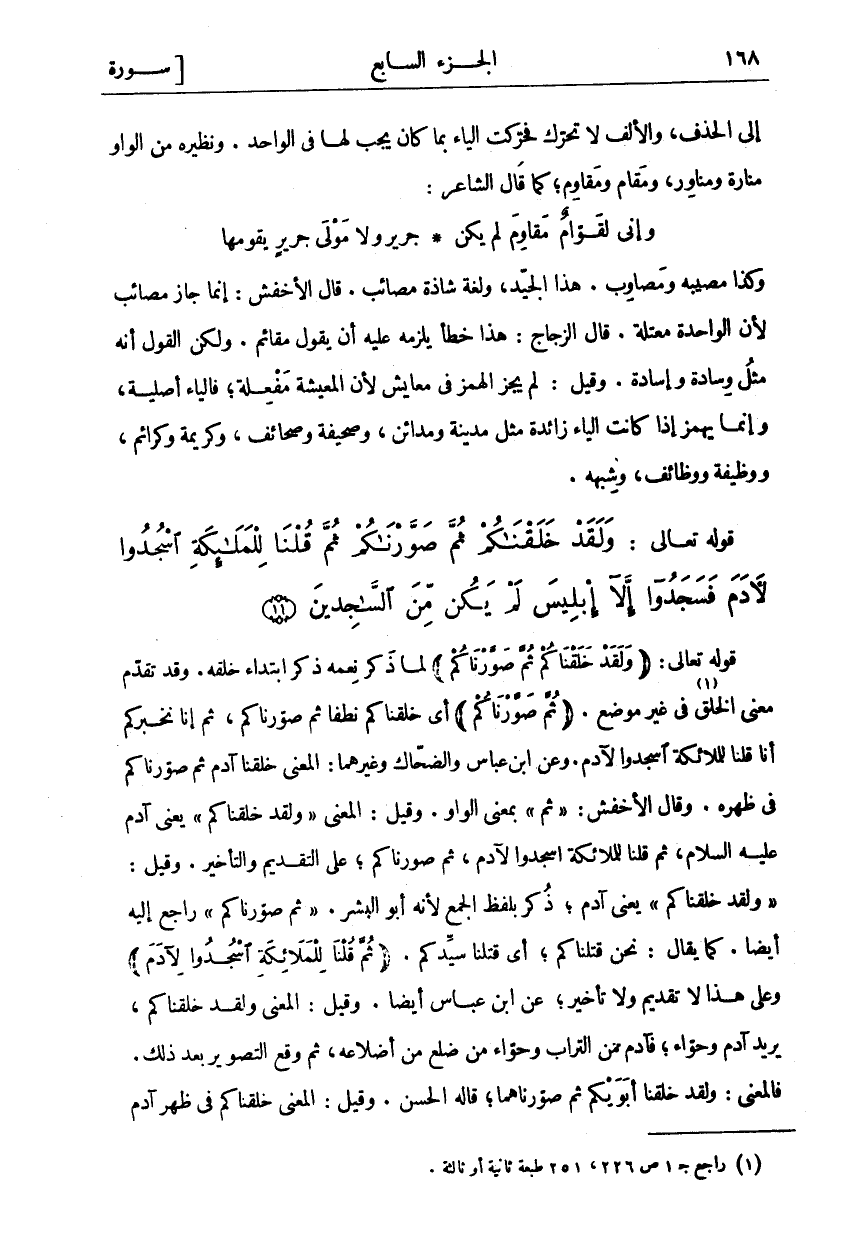 ١٦٨ الجـزء السـابع [ سـورة
إلى الحذف، والألف لا تحرّك فحرّكت الياء بما كان يجب لهـا فى الواحد . ونظيره من الواو
منارة ومناور، ومَقام ومَقاوِم؛ كما قال الشاعر :
و إنى لقَـوّامٌ مَقاوِمَ لم يكن * جرير ولا مَوْلَى جريرٍ يقومها
وكذا مصيبه ومَصاوِب . هذا الجيّد، ولغة شاذة مصائب . قال الأخفش : إنما جاز مصائب
لأن الواحدة معتلة . قال الزجاج : هذا خطأ يلزمه عليه أن يقول مقائم . ولكن القول أنه
مثلُ وِسادة و إسادة . وقيل : لم يجز الهمز فى معايش لأن المعيشة مَفْعِـلة؛ فالياء أصليـة،
و إنمـا يهمز إذا كانت الياء زائدة مثل مدينة ومدائن ، وصحيفة وصحائف ، وكريمة وكرائم ،
ووظيفة ووظائف، وشِبهه .
قوله تعـالى : وَلَقَدْ خَلَقْنَـٰكُمْ ثُمَّ صَوَّرْنَـٰكُمْ ثُمَّ قُلْنَا لِلْمَلَـٰٓئِكَةِ ٱسْجُدُوا
لِأَدَمَ فَسَجَدُوٓا إِلَّآ إِبْلِيسَ لَمْ يَكُن مِّنَ ٱلسَّـٰجِدِينَ ﴿١١﴾
قوله تعالى : ﴿ وَلَقَدْ خَلَقْنَاكُمْ ثُمَّ صَوَّرْنَاكُمْ ﴾ لمـا ذَكر نِعمه ذكر ابتداء خلقه . وقد تقدّم
معنى الخلق (١) فى غير موضع . ﴿ ثُمَّ صَوَّرْنَاكُمْ ﴾ أى خلقناكم نطفا ثم صوّرناكم ، ثم إنا نخـبركم
أنا قلنا للملائكة ٱسجدوا لآدم . وعن ابن عباس والضحّاك وغيرهما : المعنى خلقنا آدم ثم صوّرناكم
فى ظهره . وقال الأخفش : « ثم » بمعنى الواو . وقيل : المعنى « ولقد خلقناكم » يعنى آدم
عليـه السلام، ثم قلنا للملائكة اسجدوا لآدم ، ثم صورناكم ؛ على التقـديم والتأخير . وقيل :
« ولقد خلقناكم » يعنى آدم ؛ ذُكر بلفظ الجمع لأنه أبو البشر . « ثم صوّرناكم » راجع إليه
أيضا . كما يقال : نحن قتلناكم ؛ أى قتلنا سيِّدكم . ﴿ ثُمَّ قُلْنَا لِلْمَلَائِكَةِ ٱسْجُـدُوا لِآدَمَ ﴾
وعلى هـذا لا تقديم ولا تأخير ؛ عن ابن عبـاس أيضا . وقيل : المعنى ولقـد خلقناكم ،
يريد آدم وحوّاء ؛ فآدم من التراب وحوّاء من ضلع من أضلاعه ، ثم وقع التصوير بعد ذلك .
فالمعنى : ولقد خلقنا أبَوَيْكم ثم صوّرناهما ؛ قاله الحسن . وقيل : المعنى خلقناكم فى ظهر آدم
(١) راجع ج ١ ص ٢٢٦ ، ٢٥١ طبعة ثانية أو ثالثة .